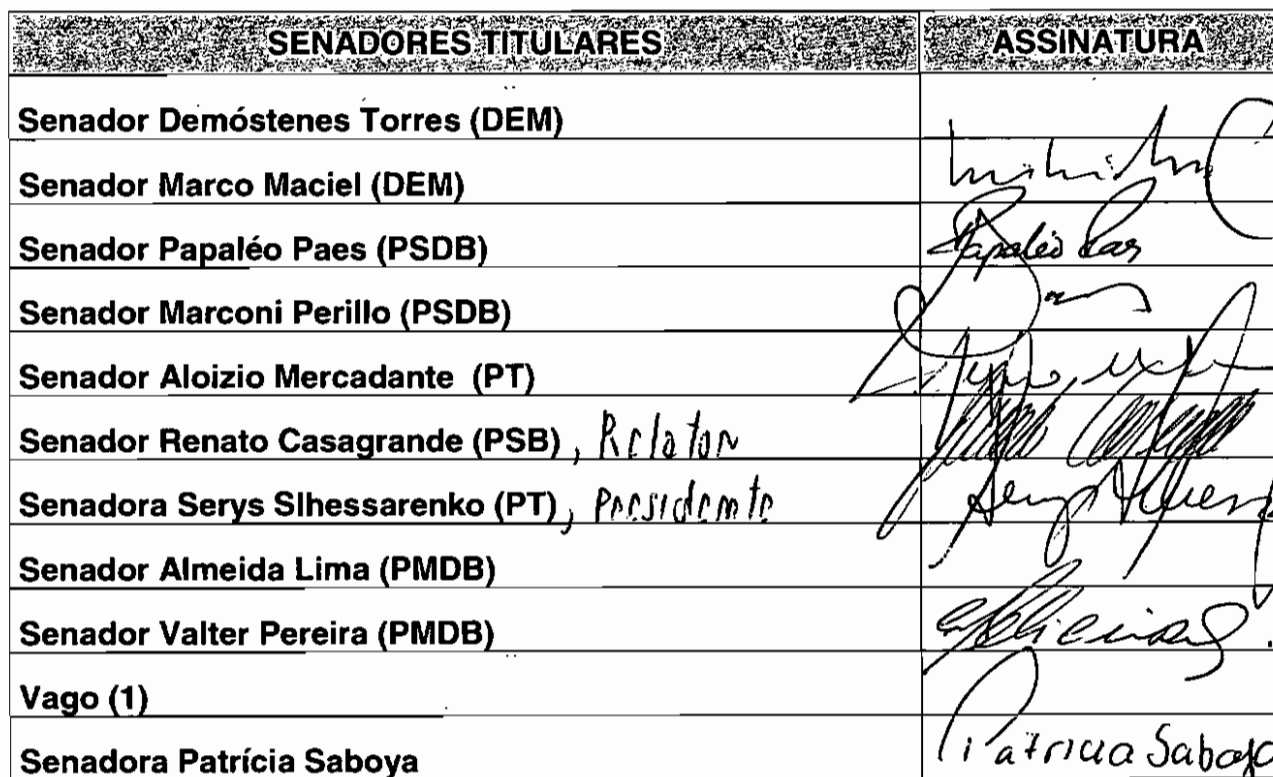 SENADORES TITULARES ASSINATURA
Senador Demóstenes Torres (DEM)
Senador Marco Maciel (DEM)
Senador Papaléo Paes (PSDB) Papaléo Paes
Senador Marconi Perillo (PSDB)
Senador Aloizio Mercadante (PT)
Senador Renato Casagrande (PSB), Relator
Senadora Serys Slhessarenko (PT), Presidente
Senador Almeida Lima (PMDB)
Senador Valter Pereira (PMDB)
Vago (1)
Senadora Patrícia Saboya Patricia Saboya